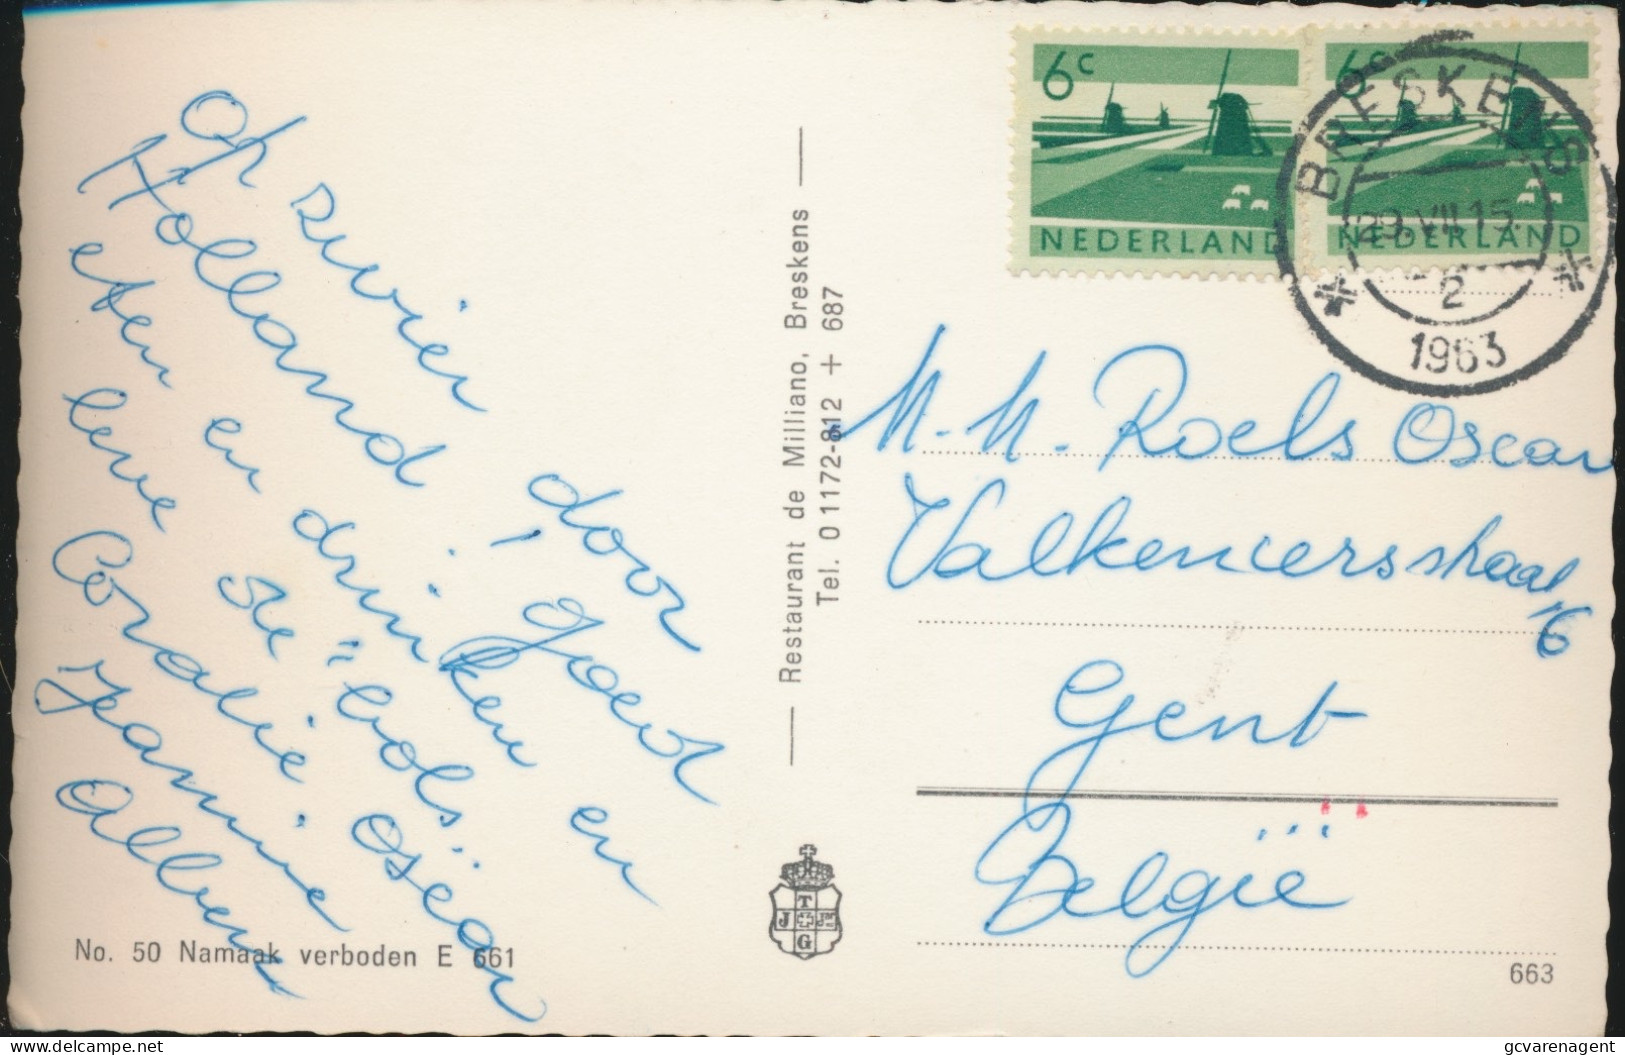 Op zwier door
Holland, goed
eten en drinken en
leve de "bols"
Coralie Oscar
Jeannine
Albert
No. 50 Namaak verboden E 661
Restaurant de Milliano, Breskens
Tel. 01172-812 + 687
T
J M
G
6c
NEDERLAND
6c
NEDERLAND
BRESKENS
29.VII.15.
2
1963
M. M. Roels Oscar
Valkeniersstraat
16
Gent
België
663
gcvarenagent
delcampe.net